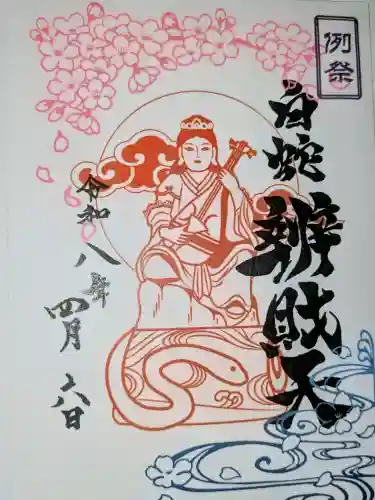 例祭
白蛇辨財天
令和八年
四月六日